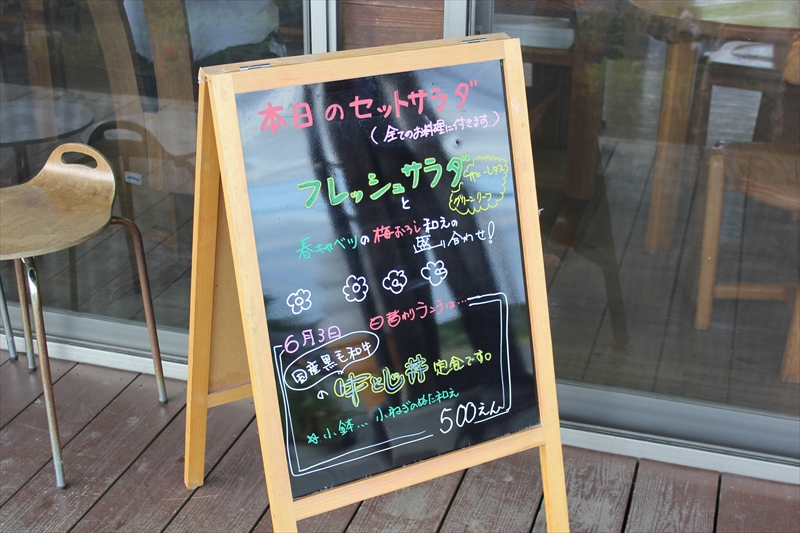 本日のセットサラダ
(全てのお料理に付きます)
フレッシュサラダ
サニーレタス
グリーンリーフ
と
春キャベツの梅おろし和えの
盛り合わせ!
日替わりランチは…
6月3日
国産黒毛和牛
の牛とじ丼定食です。
☆小鉢…小ねぎのぬた和え
500えん